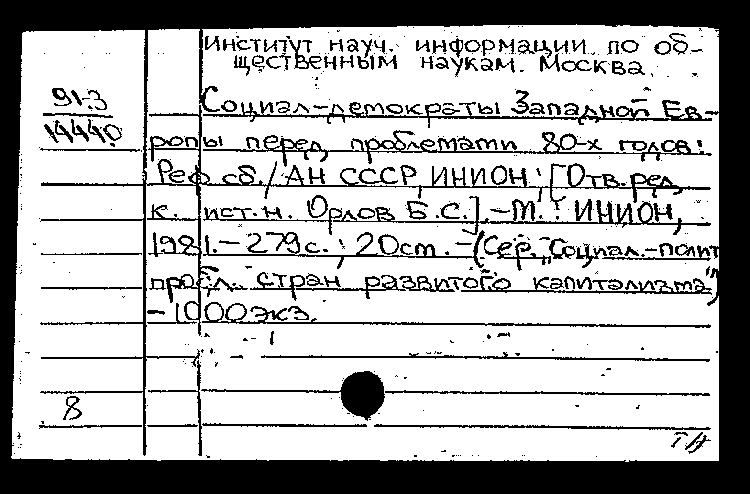 Институт науч. информации по об-
щественным наукам. Москва.
91-3
14440
Социал-демократы Западной Ев-
ропы перед проблемами 80-х годов:
Реф. сб./АН СССР, ИНИОН; [Отв. ред.
к. ист. н. Орлов Б.С.].-М.: ИНИОН,
1981.-279с.; 20см.-(Сер. „Социал.-полит
пробл. стран развитого капитализма")
-1000экз.
8